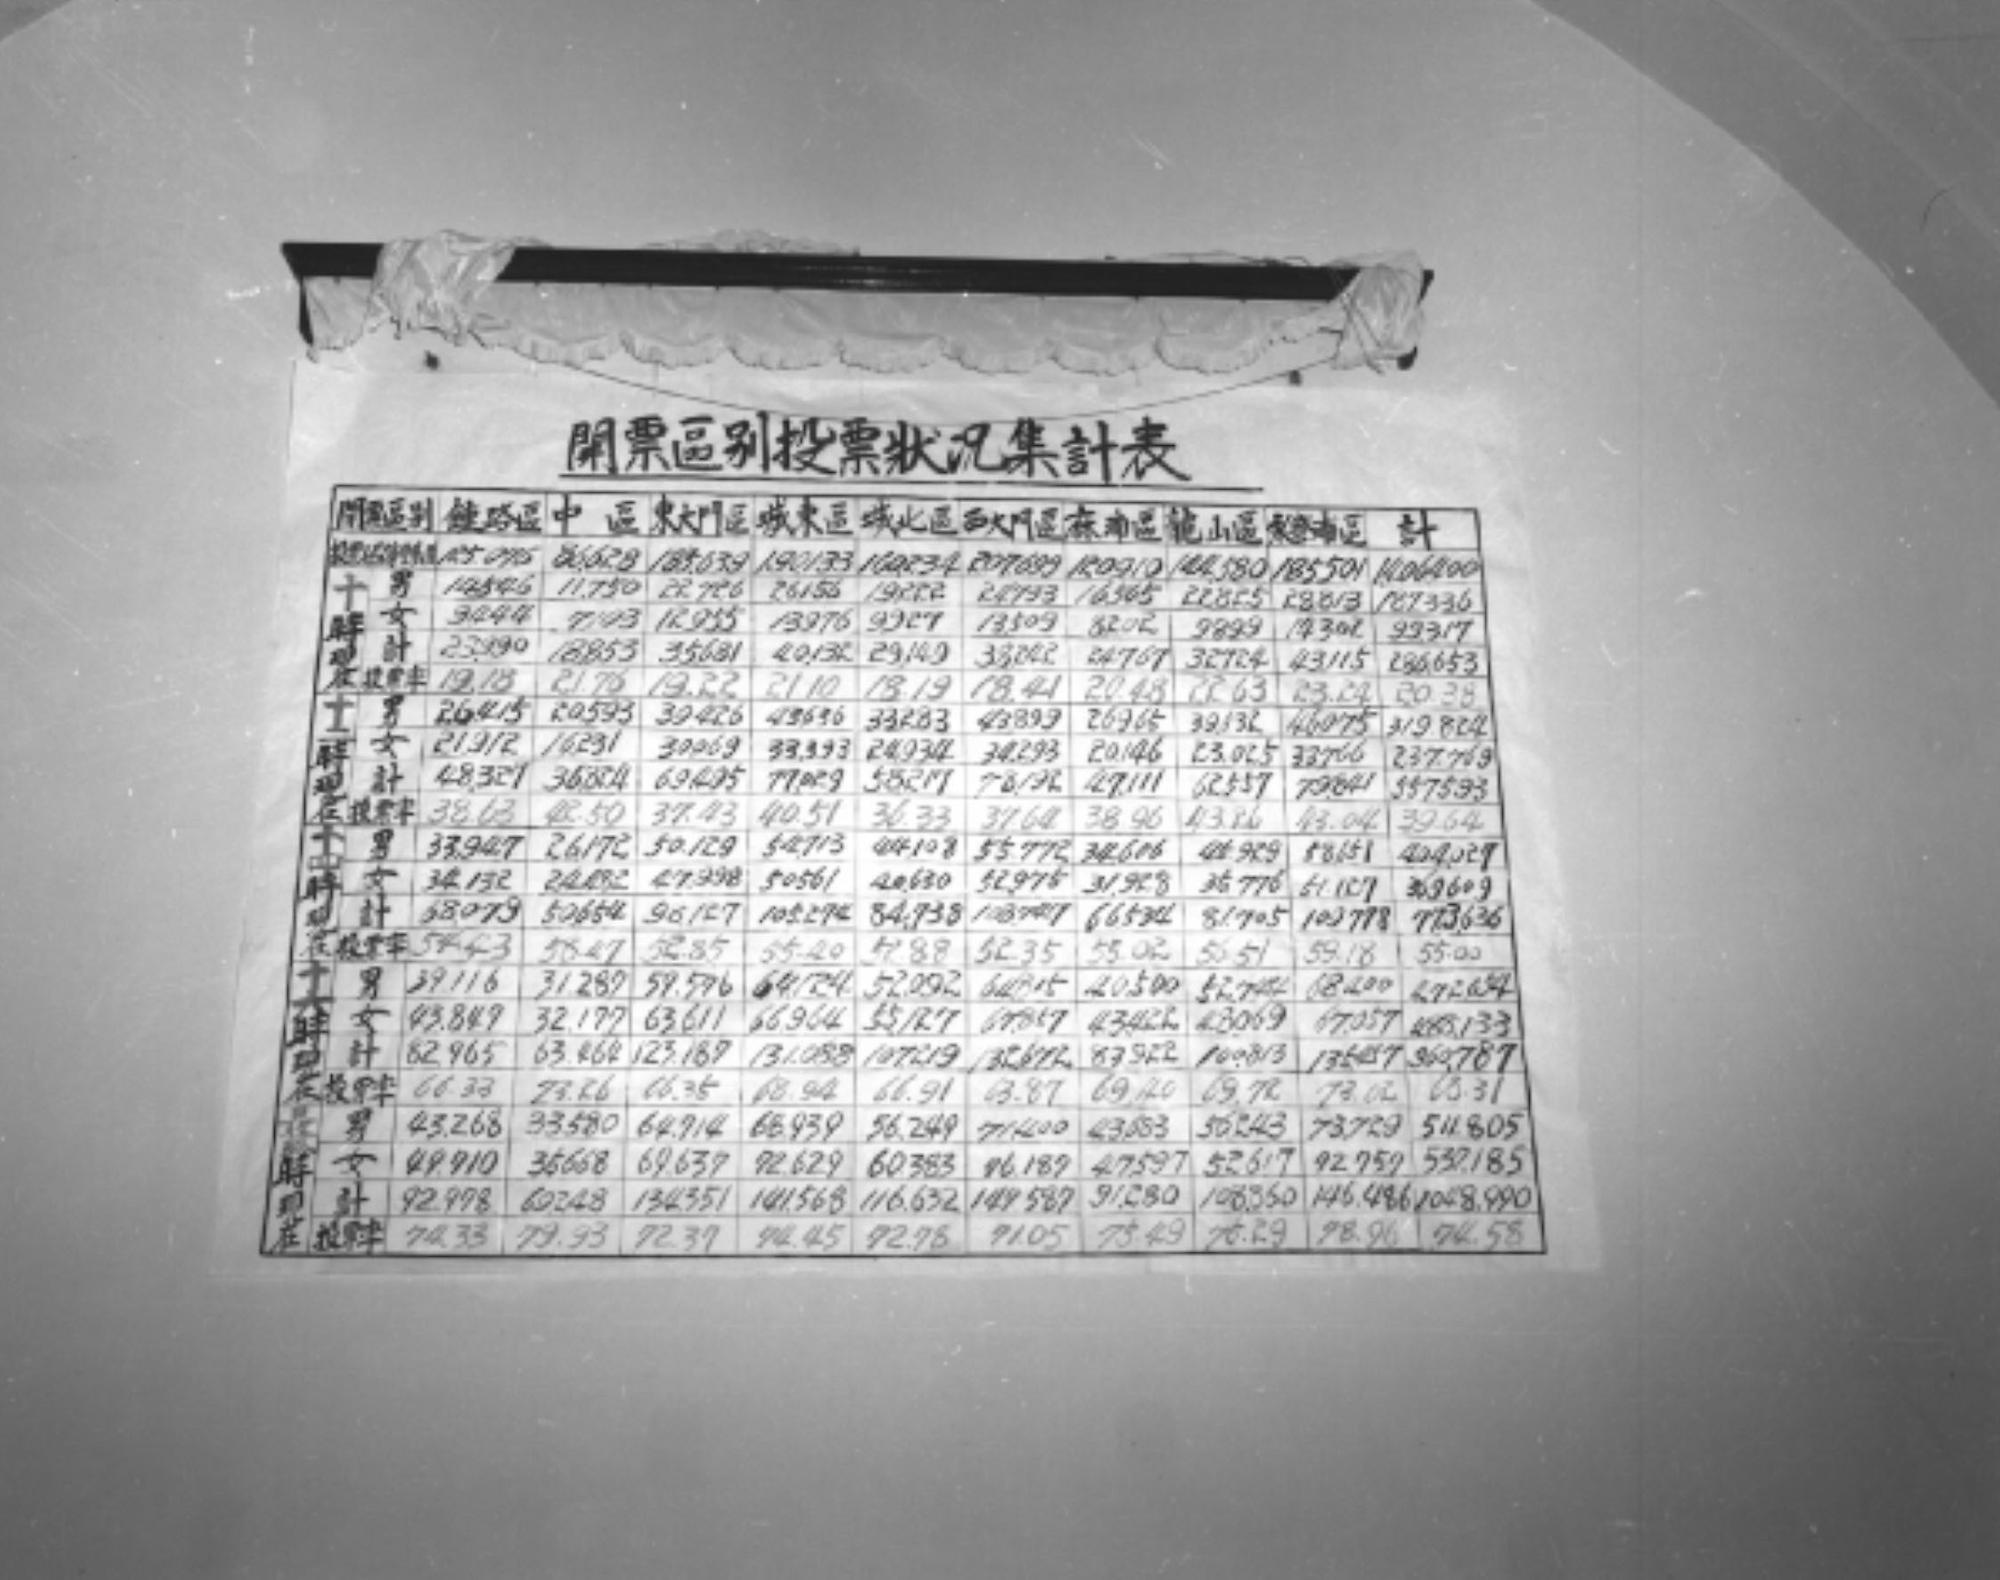 開票區別投票狀況集計表
開票區別 鍾路區 中區 東大門區 城東區 城北區 西大門區 麻浦區 龍山區 永登浦區 計
125.075 86,628 185,639 190133 160,234 207,699 120,910 144,580 185,501 1,406,400
十時現在 男 14,546 11,750 22,726 26156 19,222 16,565 22,825 28,813 187,336
女 9,444 12,955 13,976 9,927 13,509 8,202 9,899 14,302 99,317
計 23,990 18,853 35,681 40,132 29,149 24,767 32,724 43,115 286,653
投票率 19.18 21.76 19.22 21.10 18.19 18.41 20.48 22.63 23.24 20.38
十二時現在 男 26,415 20593 39,426 43636 33,283 43,899 26,965 39,132 46,075 319,824
女 21,912 16231 30,069 33,393 24,934 34,293 20,146 23,025 33,766 237,769
計 48,327 36,824 69,495 77,029 58,217 78,192 47,111 62,557 79,841 557,593
投票率 38.63 42.50 37.43 40.51 36.33 37.64 38.96 43.04 39.64
十四時現在 男 33,947 26,172 50,129 54,713 44,108 55,772 34,606 58,651 404,027
女 34,132 24,482 50561 40,630 52,975 31,928 36,776 51,127 369,609
計 68,079 50,654 105,274 84,738 108,747 66,534 81,705 109,778 773,636
投票率 54.43 58.47 52.85 55.40 52.88 52.35 55.02 56.51 59.18 55.00
十六時現在 男 39,116 31,287 59,576 64,124 52,092 64,815 40,500 52,744 68,400 472,654
女 43,849 32,177 63,611 66,964 55,127 67,857 43,422 67,057 488,133
計 82,965 63,464 123,187 131,088 107,219 132,672 83,922 100,813 135,457 960,787
投票率 66.33 73.26 66.35 68.94 66.91 63.87 69.40 69.72 73.02 68.31
時現在 男 43,268 33,580 64,714 68,939 56,249 71,400 43,683 56,243 73,729 511,805
女 49,710 35,668 69,637 72,629 60,383 76,187 47,597 52,617 537,185
計 92,978 134,351 141,568 116,632 91,280 146,486 1,048,990
投票率 74.33 79.93 72.37 74.45 72.78 71.05 75.49 75.29 78.96 74.58